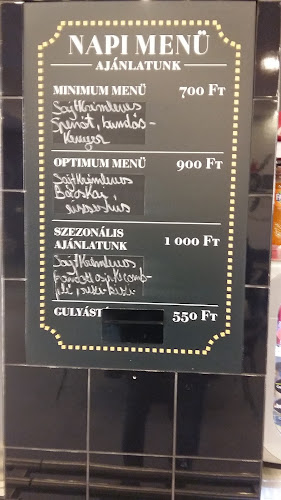 NAPI MENÜ
AJÁNLATUNK
MINIMUM MENÜ 700 FT
Sajtkrémleves
Spenót, bundás-
kenyér
OPTIMUM MENÜ 900 FT
Sajtkrémleves
rizses hús
SZEZONÁLIS
AJÁNLATUNK 1 000 FT
Sajtkrémleves
GULYÁST 550 FT